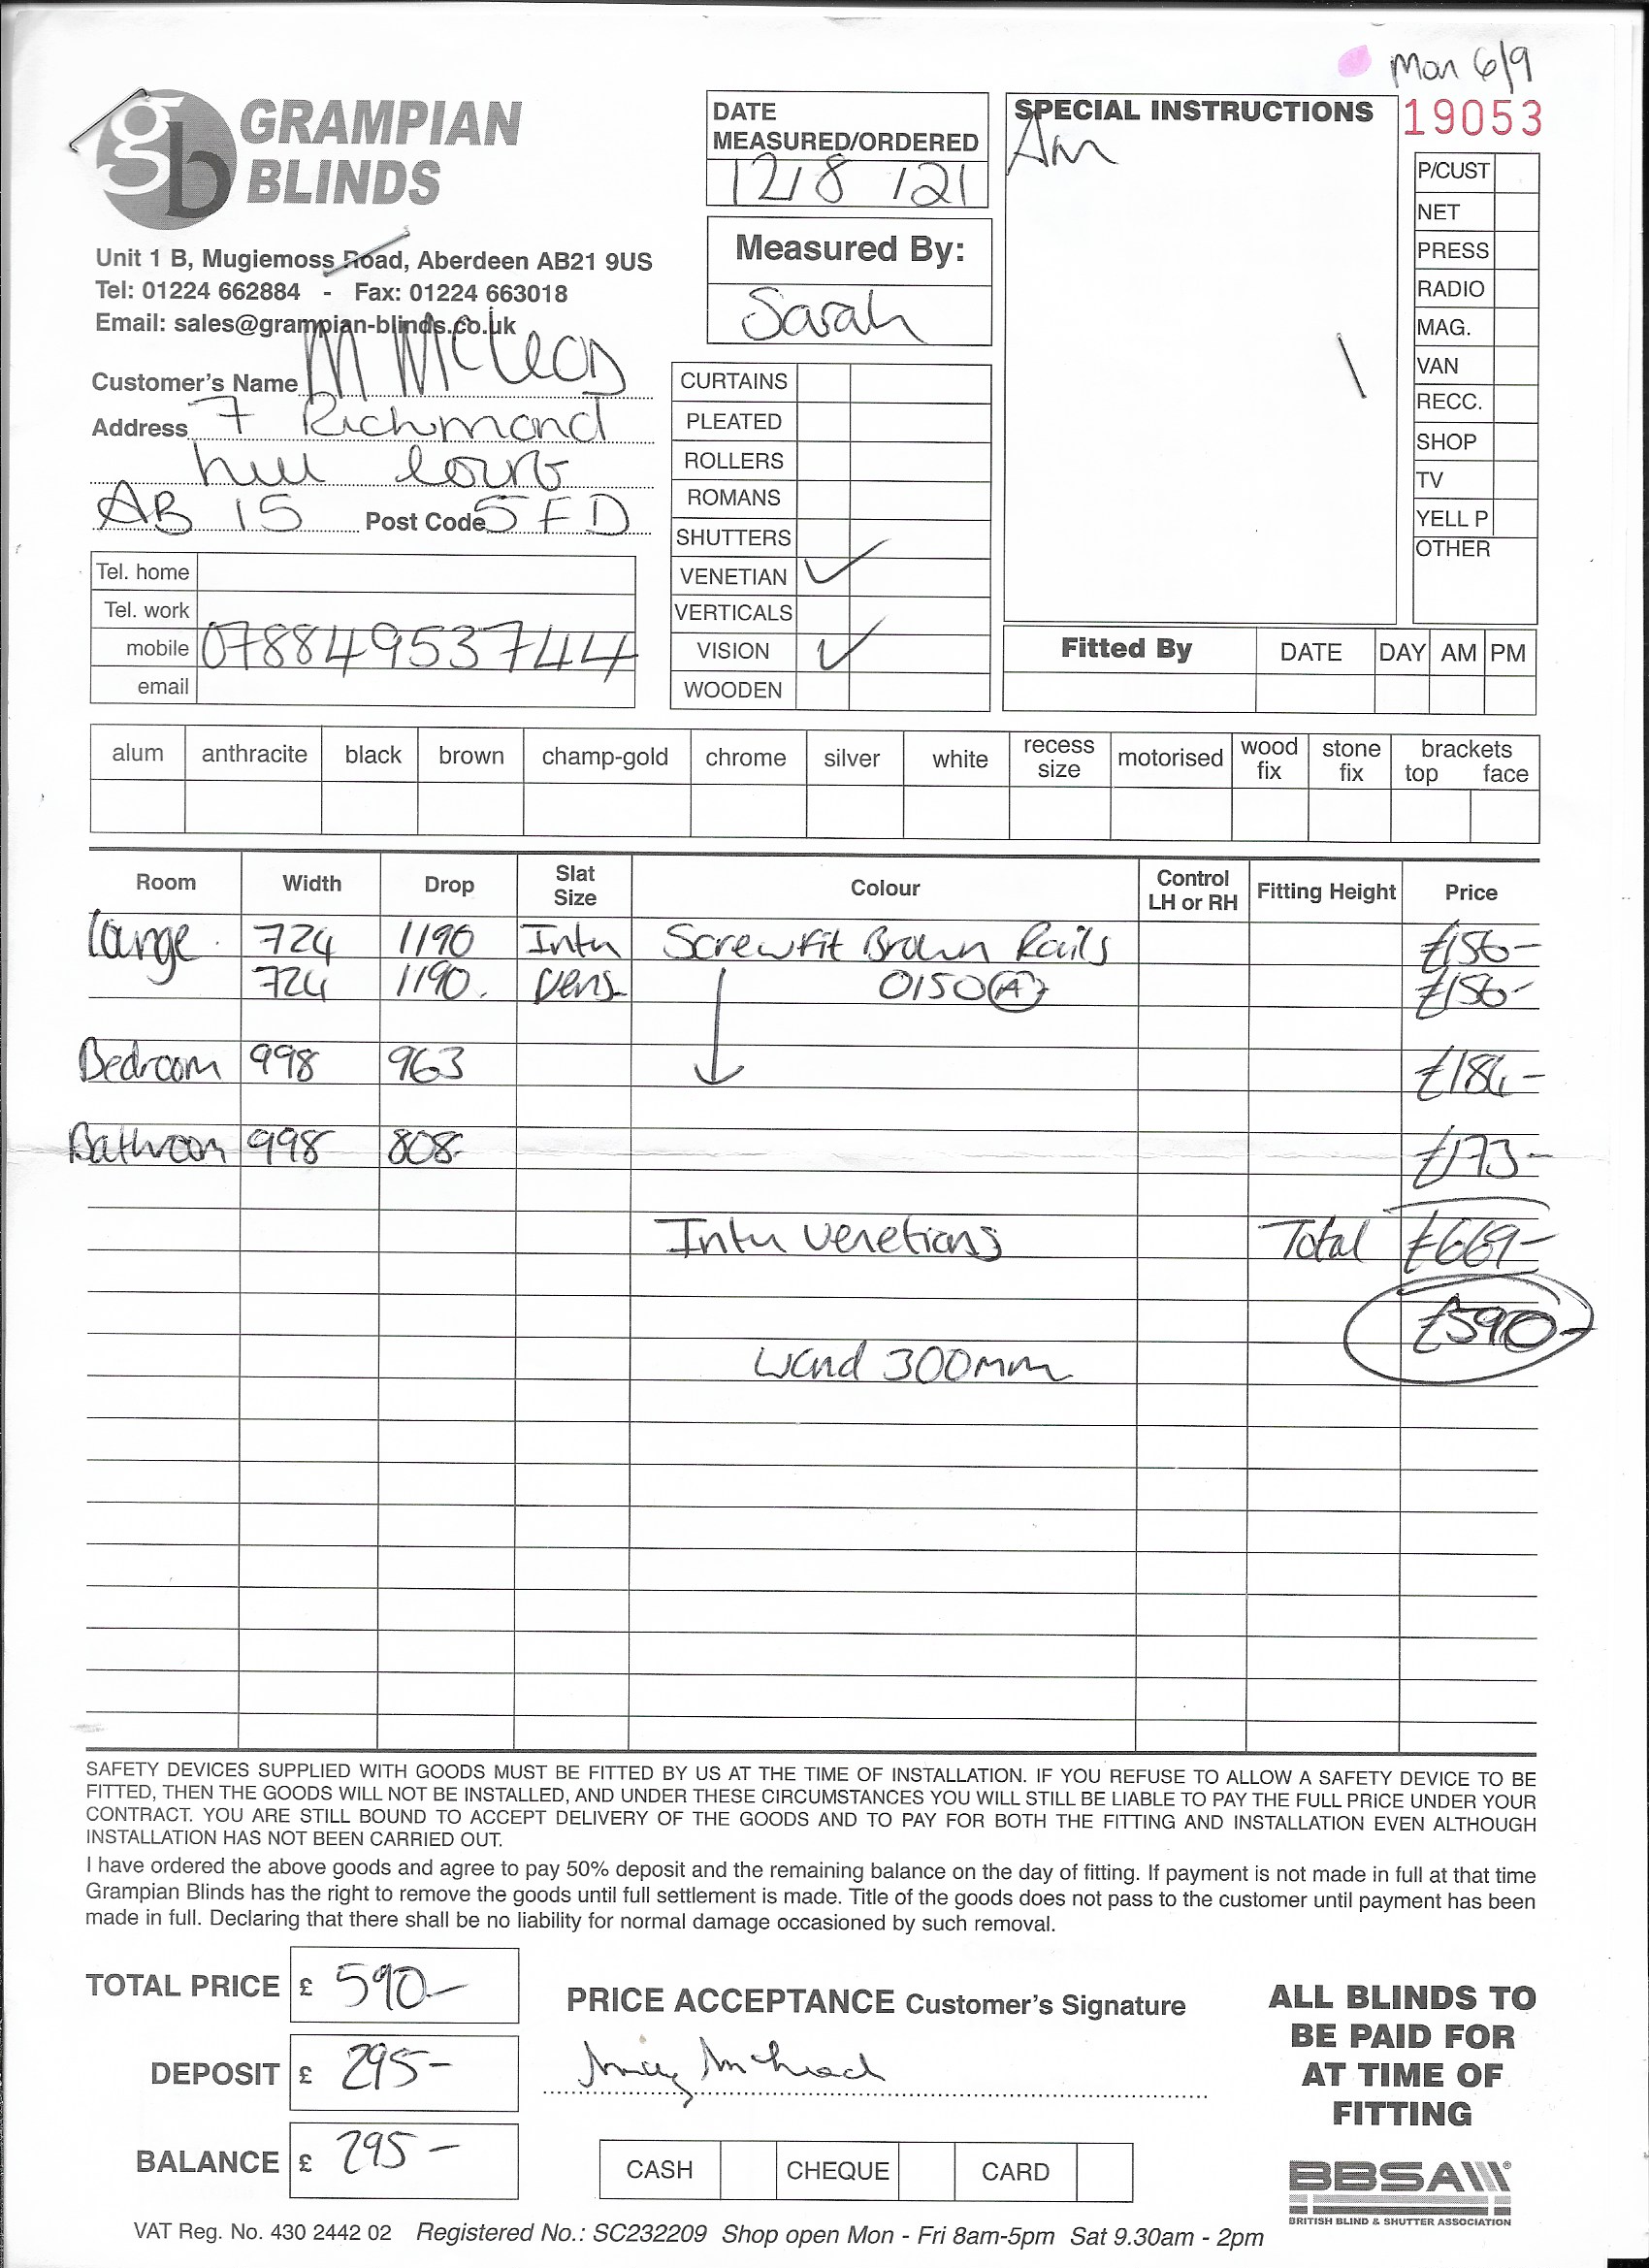 Mon 6/9
19053
GRAMPIAN
BLINDS
Unit 1 B, Mugiemoss Road, Aberdeen AB21 9US
Tel: 01224 662884 - Fax: 01224 663018
Email: sales@grampian-blinds.co.uk
Customer's Name M McLeod
Address 7 Richmond
hill court
AB 15 Post Code 5FD
Tel. home
Tel. work
mobile 07884953744
email
DATE
MEASURED/ORDERED
12/8/21
Measured By:
Sarah
CURTAINS
PLEATED
ROLLERS
ROMANS
SHUTTERS
VENETIAN ✓
VERTICALS
VISION ✓
WOODEN
SPECIAL INSTRUCTIONS
Am
P/CUST
NET
PRESS
RADIO
MAG.
VAN
RECC.
SHOP
TV
YELL P
OTHER
Fitted By DATE DAY AM PM
alum anthracite black brown champ-gold chrome silver white recess size motorised wood fix stone fix brackets top face
Room Width Drop Slat Size Colour Control LH or RH Fitting Height Price
Lounge 724 1190 Intu Screwfit Brown Rails £156-
724 1190. Vens 0150 (A) £156-
Bedroom 998 963 £184-
Bathroom 998 808- £173-
Intu Venetians Total £669-
£590-
Wand 300mm
SAFETY DEVICES SUPPLIED WITH GOODS MUST BE FITTED BY US AT THE TIME OF INSTALLATION. IF YOU REFUSE TO ALLOW A SAFETY DEVICE TO BE
FITTED, THEN THE GOODS WILL NOT BE INSTALLED, AND UNDER THESE CIRCUMSTANCES YOU WILL STILL BE LIABLE TO PAY THE FULL PRICE UNDER YOUR
CONTRACT. YOU ARE STILL BOUND TO ACCEPT DELIVERY OF THE GOODS AND TO PAY FOR BOTH THE FITTING AND INSTALLATION EVEN ALTHOUGH
INSTALLATION HAS NOT BEEN CARRIED OUT.
I have ordered the above goods and agree to pay 50% deposit and the remaining balance on the day of fitting. If payment is not made in full at that time
Grampian Blinds has the right to remove the goods until full settlement is made. Title of the goods does not pass to the customer until payment has been
made in full. Declaring that there shall be no liability for normal damage occasioned by such removal.
TOTAL PRICE £ 590-
DEPOSIT £ 295-
BALANCE £ 295-
PRICE ACCEPTANCE Customer's Signature
CASH CHEQUE CARD
ALL BLINDS TO
BE PAID FOR
AT TIME OF
FITTING
BBSA
BRITISH BLIND & SHUTTER ASSOCIATION
VAT Reg. No. 430 2442 02 Registered No.: SC232209 Shop open Mon - Fri 8am-5pm Sat 9.30am - 2pm